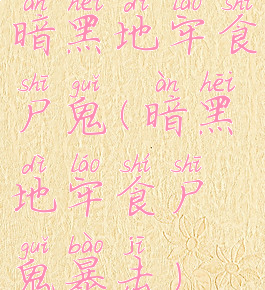 àn hēi dì láo shí
暗黑地牢食
shī guǐ àn hēi
尸鬼(暗黑
dì láo shí shī
地牢食尸
guǐ bào jī
鬼暴击)